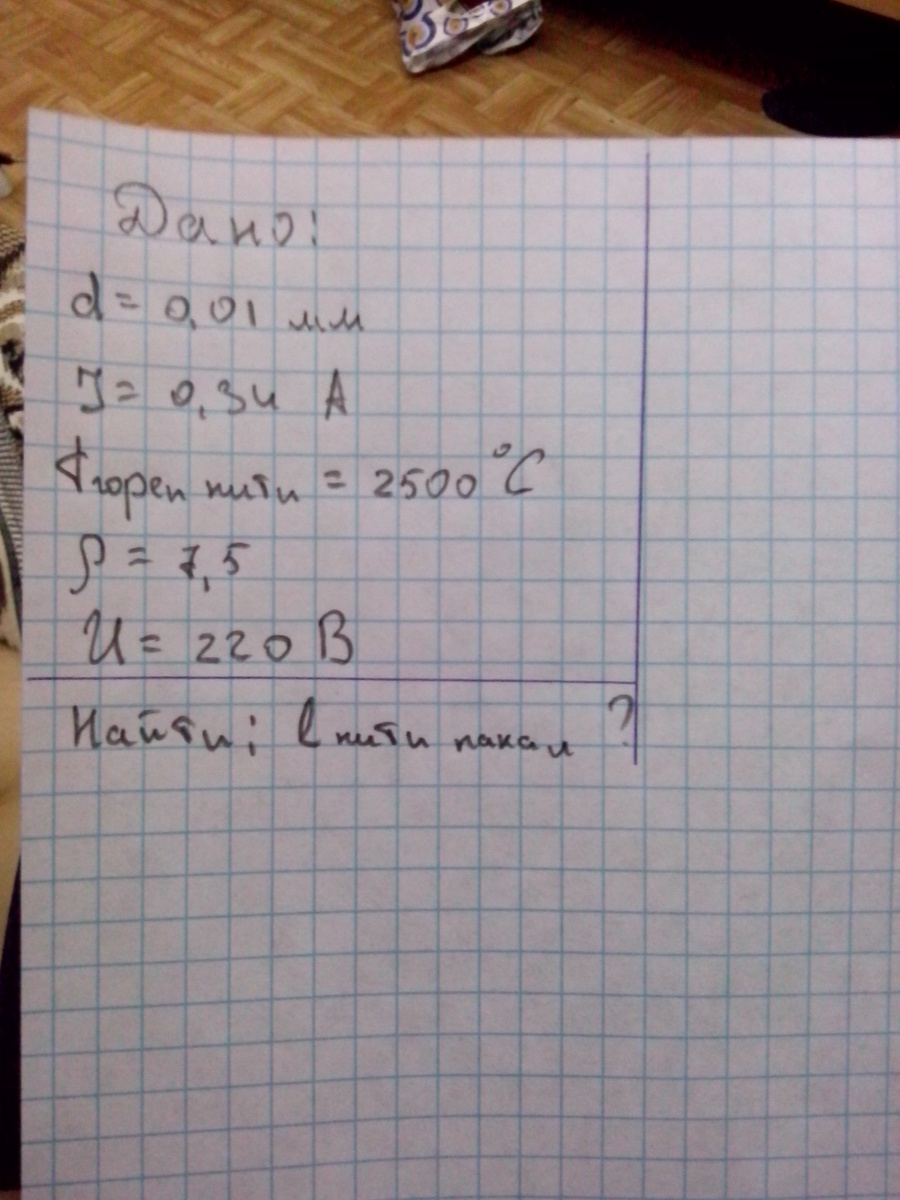 Дано:
d = 0,01 мм
J = 0,34 А
t горен нити = 2500 °C
ρ = 7,5
U = 220 В
Найти: l нити накал ?